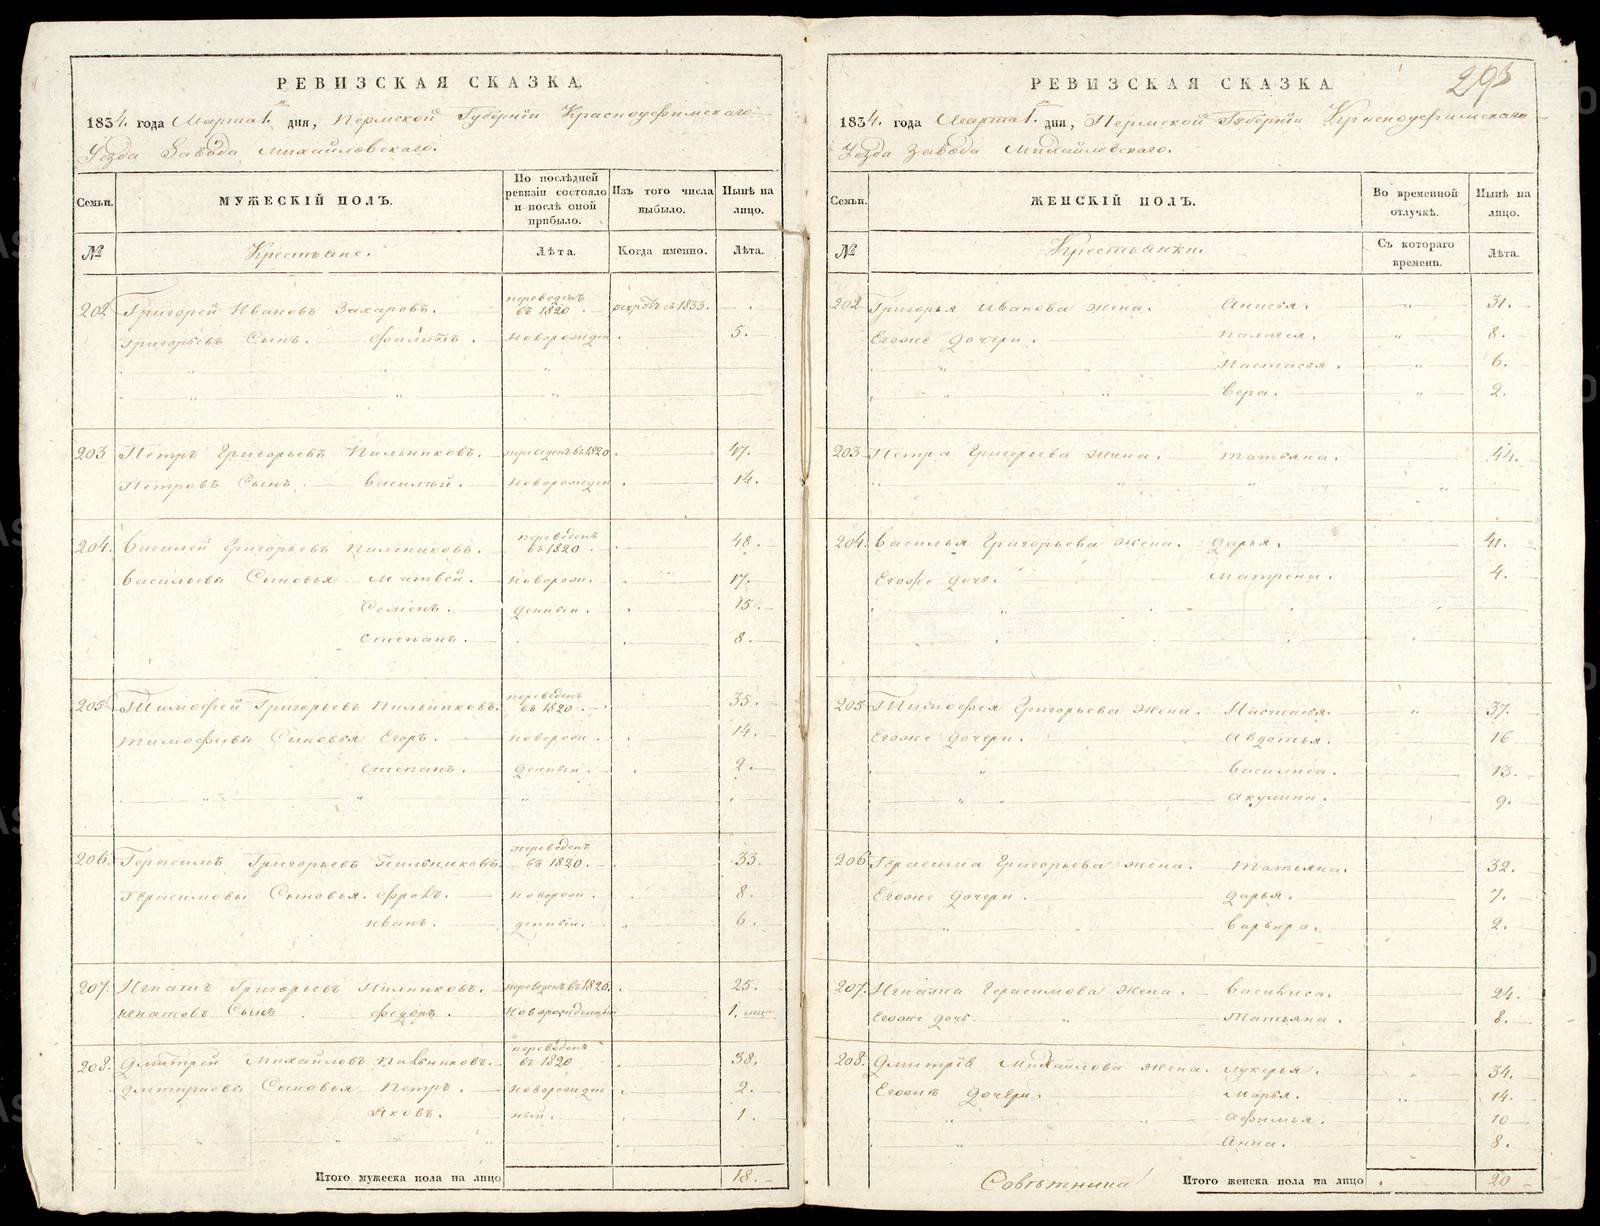 РЕВИЗСКАЯ СКАЗКА.
1834. года Марта 1. дня, Пермской Губернiи Красноуфимскаго
Уезда Завода Михайловскаго.
Семьи. МУЖЕСКIЙ ПОЛЪ. По послѣдней ревизiи состояло и послѣ оной прибыло. Изъ того числа выбыло. Нынѣ на лицо.
№ Крестьяне. Лѣта. Когда именно. Лѣта.
202 Григорей Ивановъ Захаровъ. переведенъ въ 1820. 1833.
Григорьевъ Сынъ. Филипъ. новорожден 5.
203 Петръ Григорьевъ Пильниковъ. переведенъ въ 1820. 47.
Петровъ Сынъ. Василiй. новорожден 14.
204. Василей Григорьевъ Пильниковъ. переведенъ въ 1820. 48.
Васильевы Сыновья Матвей. новорож. 17.
Семенъ. денныи. 15.
Степанъ. 8.
205 Тимофей Григорьевъ Пильниковъ. переведенъ въ 1820. 35.
Тимофеевы Сыновья Егоръ. новорож. 14.
Степанъ. денныи. 2.
206. Герасимъ Григорьевъ Пильниковъ. переведенъ въ 1820. 33.
Герасимовы Сыновья. Фролъ. новорож. 8.
Иванъ. денныи. 6.
207. Игнатъ Григорьевъ Пильниковъ. переведенъ въ 1820. 25.
Игнатовъ Сынъ Федоръ. Новорожденный 1.
208. Дмитрей Михайловъ Пильниковъ. переведенъ въ 1820 38.
Дмитриевы Сыновья Петръ. Новорожден 2.
Яковъ. ный. 1.
Итого мужеска пола на лицо 18.
293
РЕВИЗСКАЯ СКАЗКА.
1834. года Марта 1. дня, Пермской Губернiи Красноуфимскаго
Уезда Завода Михайловскаго.
Семьи. ЖЕНСКIЙ ПОЛЪ. Во временной отлучкѣ. Нынѣ на лицо.
№ Крестьянки. Съ котораго времени. Лѣта.
202 Григорья Иванова жена. Анисья. 31.
Егоже дочери. Палагея. 8.
Настасья. 6.
Вера. 2.
203 Петра Григорьева жена. Татьяна. 44.
204. Василья Григорьева жена. Дарья. 41.
Егоже дочь. Матрена. 4.
205 Тимофея Григорьева жена. Настасья. 37.
Егоже дочери. Авдотья. 16
Василиса. 13.
Акулина. 9.
206 Герасима Григорьева жена. Татьяна. 32.
Егоже дочери. Дарья. 7.
Варвара. 2.
207. Игнатья Герасимова жена. Василиса. 24.
Егоже дочь. Татьяна. 8.
208. Дмитрiя Михайлова жена. Лукерья. 34.
Егоже дочери. Марья. 14.
Афимья. 10
Анна. 8.
Совѣтника Итого женска пола на лицо 20